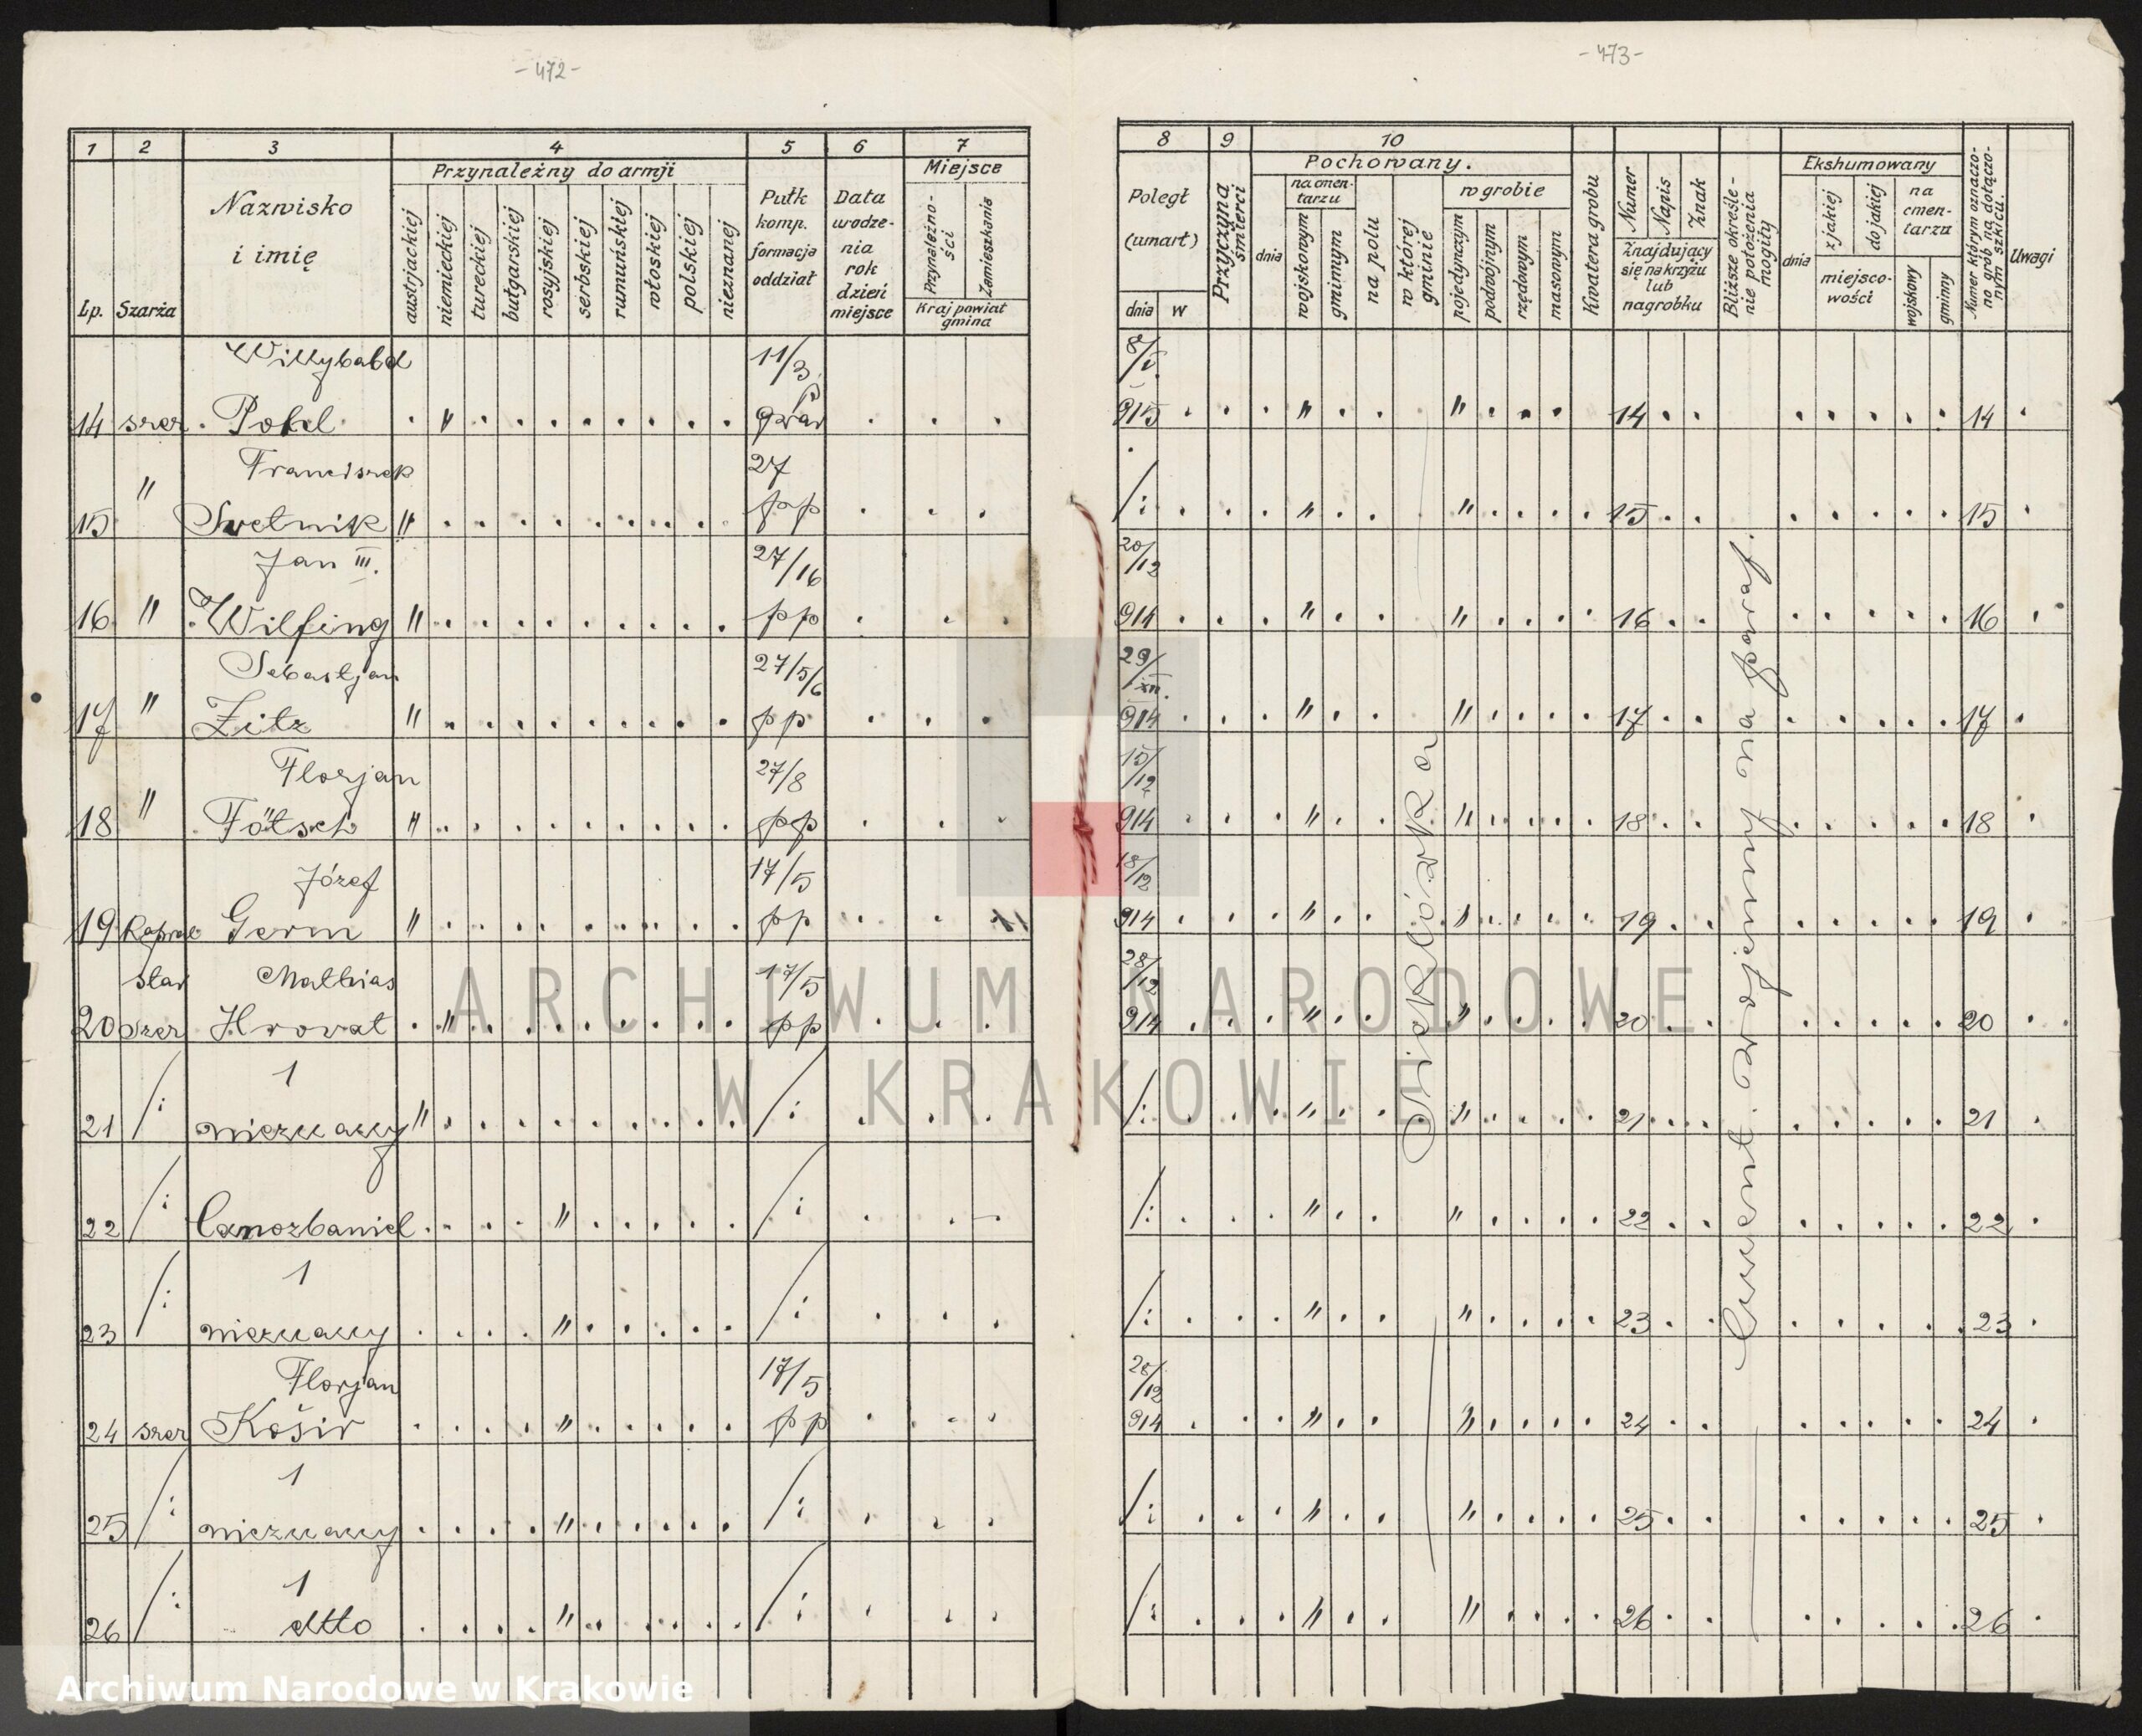 - 472 -
- 473 -
1 2 3 4 5 6 7
Lp.
Szarża
Nazwisko
i imię
Przynależny do armji
austrjackiej
niemieckiej
tureckiej
bułgarskiej
rosyjskiej
serbskiej
rumuńskiej
włoskiej
polskiej
nieznanej
Pułk
komp.
formacja
oddział
Data
urodze-
nia
rok
dzień
miejsce
Miejsce
Przynależno-
ści
Zamieszkania
Kraj powiat
gmina
8 9 10
Poległ
(umarł)
dnia w
Przyczyna
śmierci
Pochowany.
dnia
na cmen-
tarzu
wojskowym
gminnym
na polu
w której
gminie
w grobie
pojedynczym
podwójnym
rzędowym
masowym
Kwatera grobu
Numer
Napis
Znak
Znajdujący
się na krzyżu
lub
nagrobku
Bliższe określe-
nie położenia
mogiły
Ekshumowany
dnia
z jakiej
do jakiej
miejsco-
wości
na
cmen-
tarzu
wojskowy
gminny
Numer którym oznaczo-
no grób na dołączo-
nym szkicu.
Uwagi
Willybald 11/3 8/I.
14 szer. Pokel " 915 " " 14 14
Franciszek 27
15 " Swetnik " pp /: " " 15 15
Jan III. 27/16 20/12
16 " Wilfing " pp 914 " " 16 16
Sebastjan 27/5/6 29/XII.
17 " Zitz " pp 914 " " 17 17
Florjan 27/8 15/12
18 " Fötsch " pp 914 " " 18 18
Józef 17/5 18/12
19 Kapral Germ " pp 914 " " 19 19
star Mathias 17/5 28/12
20 szer Hrovat " pp 914 " " 20 20
1
21 /: nieznany " /: /: " " 21 21
22 /: " /: /: " " 22 22
1
23 /: nieznany " /: /: " " 23 23
Florjan 17/5 28/12
24 szer Košir " pp 914 " " 24 24
1
25 /: nieznany " /: /: " " 25 25
1
26 /: dtto " /: /: " " 26 26
Siekliówka
Cment. wojenny na paraf.
ARCHIWUM NARODOWE
W KRAKOWIE
Archiwum Narodowe w Krakowie